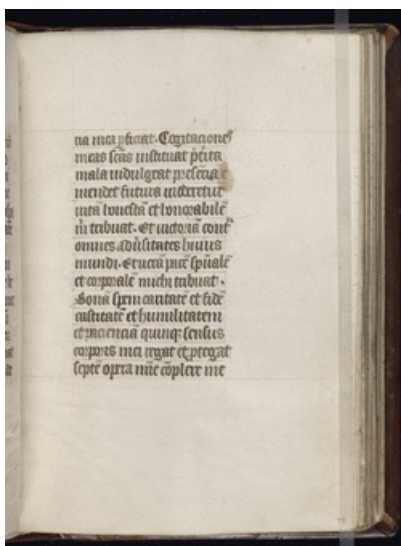 cia mea pficiat. Cogitaciones
meas sc̄as instituat p̄t̄ita
mala indulgeat presencia e
mendet futura moderetur
vitā honestā et honorabilē
m̄ tribuat. Et victoriā cont̄
omnes adv̄sitates huius
mundi. Et verā pacē sp̄ualē
et corporalē michi tribuat.
Bonā spem caritatē et fidē
castitatē et humilitatem
et pacienciā quinq̄ sensus
corporis mei regat et ptegat
septē opera mīe cōplere me